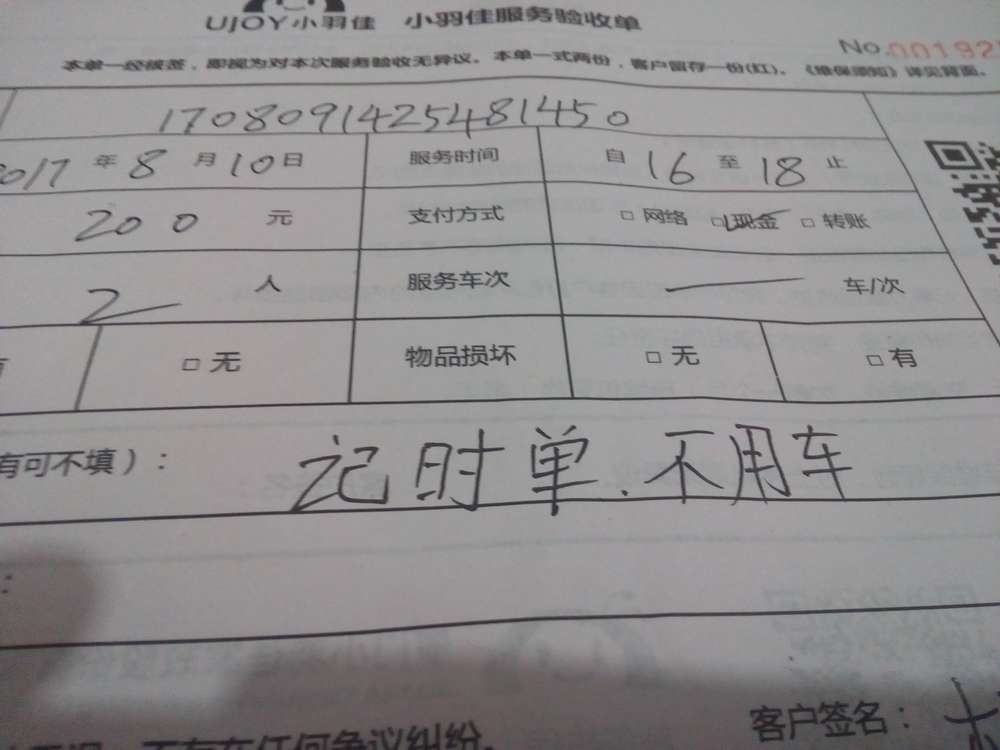 UJOY小羽佳 小羽佳服务验收单
No.00192
本单一经核签，即视为对本次服务验收无异议。本单一式两份，客户留存一份(红)。《维保须知》详见背面。
170809142548 1450
2017年8月10日 服务时间 自16至18止
200元 支付方式 □网络 □现金 □转账
2人 服务车次 车/次
□无 物品损坏 □无 □有
有可不填）： 记时单.不用车
：
客户签名：
不存在任何争议纠纷。